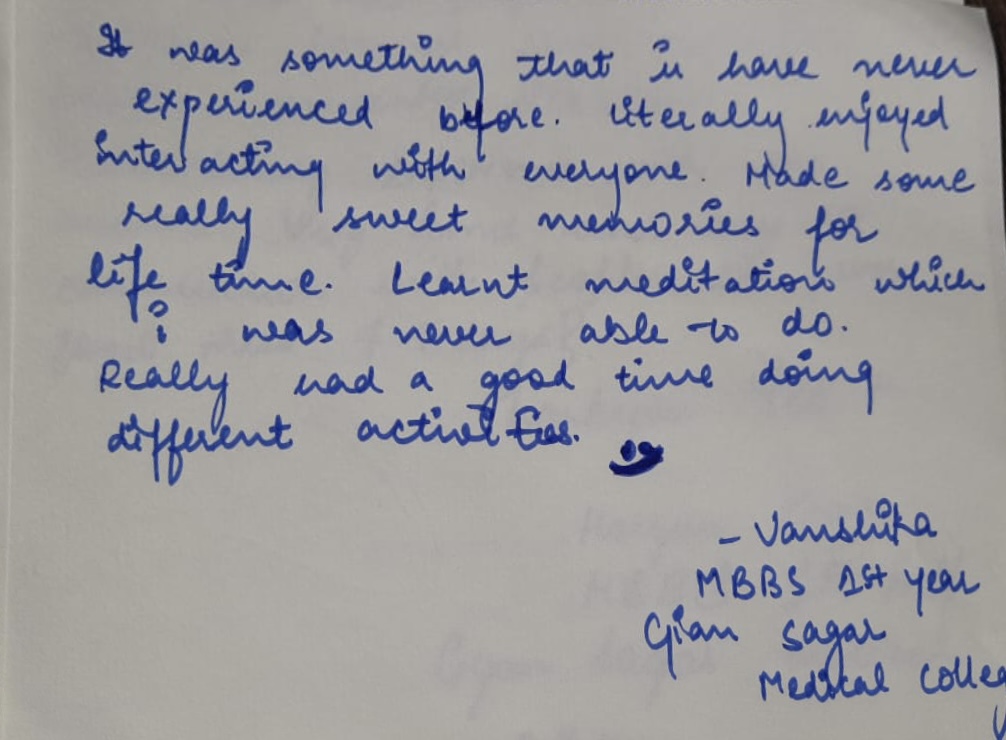 It was something that i have never
experienced before. literally enjoyed
interacting with everyone. Made some
really sweet memories for
life time. Learnt meditation which
i was never able to do.
Really had a good time doing
different activities.
- Vanshika
MBBS 1st year
Gian Sagar
Medical colleg